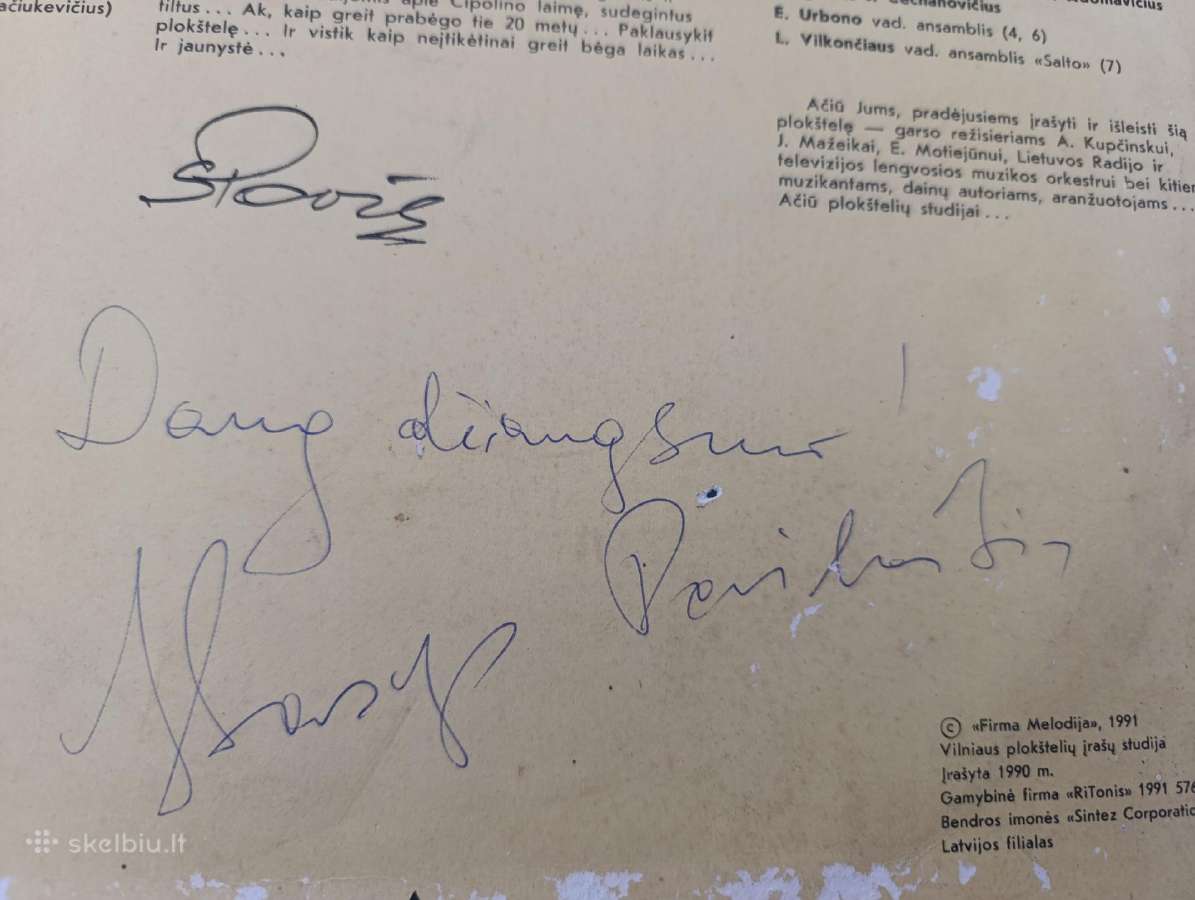 ačiukevičius)
apie Cipolino laimę, sudegintus
tiltus... Ak, kaip greit prabėgo tie 20 metų... Paklausykit
plokštelę... Ir vistik kaip neįtikėtinai greit bėga laikas...
Ir jaunystė...
E. Urbono vad. ansamblis (4, 6)
L. Vilkončiaus vad. ansamblis «Salto» (7)
Ačiū Jums, pradėjusiems įrašyti ir išleisti šią
plokštelę — garso režisieriams A. Kupčinskui,
J. Mažeikai, E. Motiejūnui, Lietuvos Radijo ir
televizijos lengvosios muzikos orkestrui bei kitiem
muzikantams, dainų autoriams, aranžuotojams...
Ačiū plokštelių studijai...
Povis
Daug džiaugsmo!
© «Firma Melodija», 1991
Vilniaus plokštelių įrašų studija
Įrašyta 1990 m.
Gamybinė firma «RiTonis» 1991 576
Bendros imonės «Sintez Corporatio
Latvijos filialas
skelbiu.lt